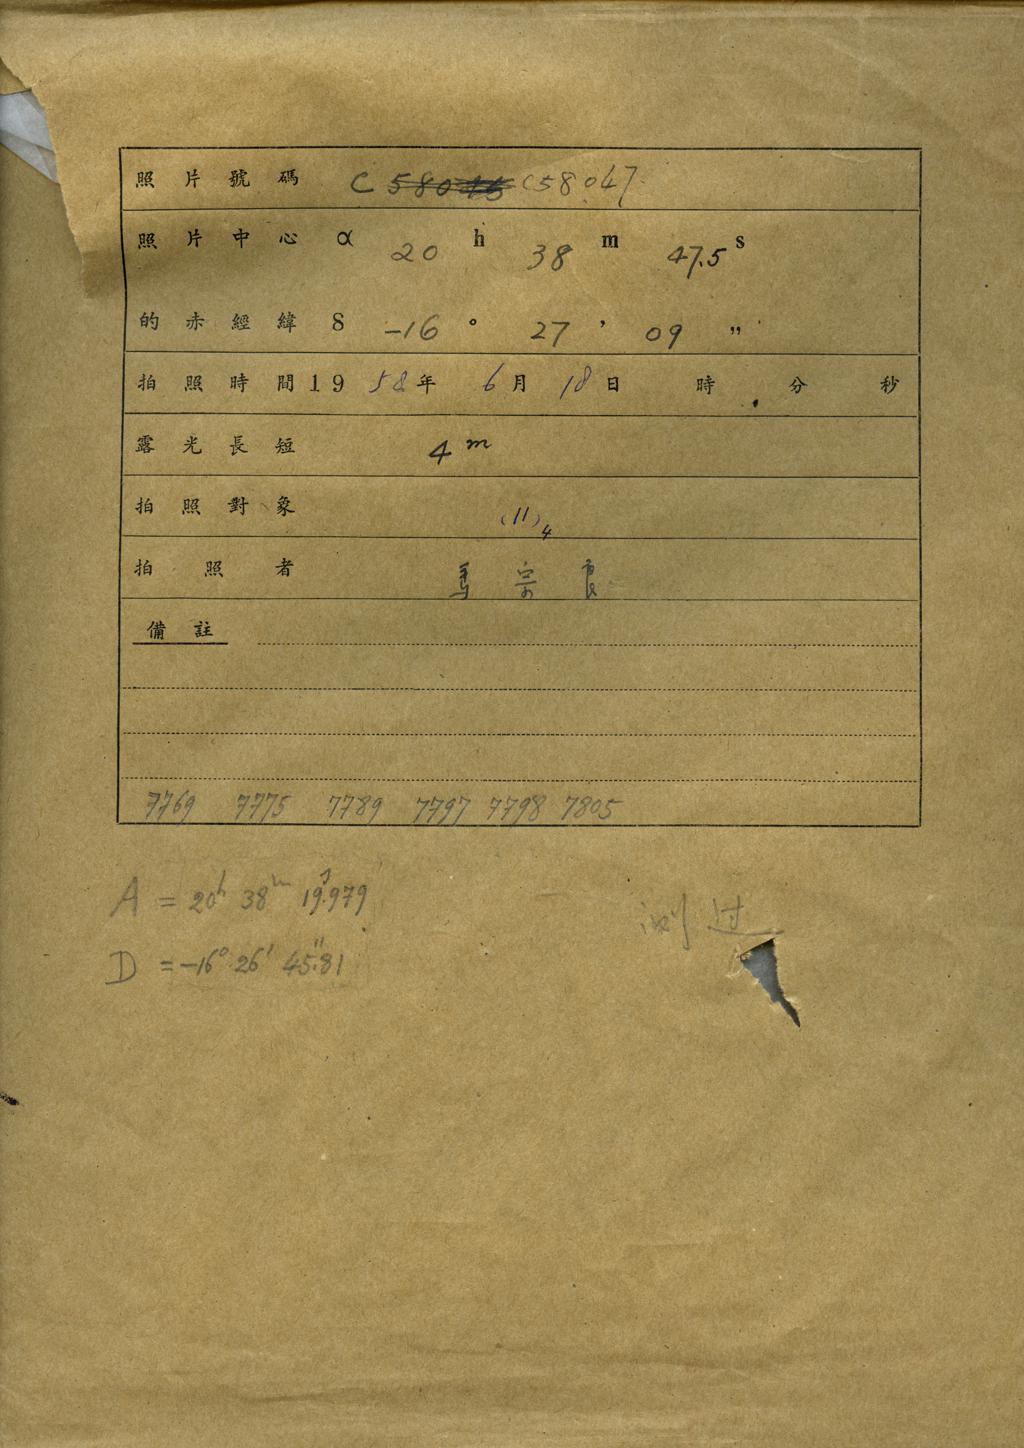 照片號碼 C 58045 C58047
照片中心 α 20 h 38 m 47.5 s
的赤經緯 δ -16 ° 27 ′ 09 ″
拍照時間 19 58 年 6 月 18 日 時 分 秒
露光長短 4 m
拍照對象 (11)4
拍照者 馬宗良
備註
7769 7775 7789 7797 7798 7805
A = 20h 38m 19s.979
D = -16° 26′ 45″.81
测过